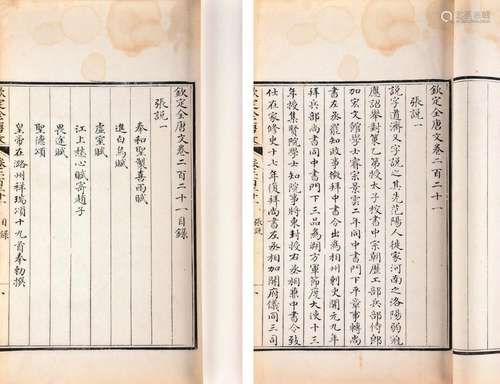 欽定全唐文卷二百二十一目錄
張說一
奉和聖製喜雨賦
進白烏賦
虛室賦
江上愁心賦寄趙子
畏途賦
聖德頌
皇帝在潞州祥瑞頌十九首奉勅撰
欽定全唐文
目錄
一
欽定全唐文卷二百二十一
張說一
說字道濟又字說之其先范陽人徙家河南之洛陽弱冠
應詔舉對策乙第授太子校書中宗朝歷工部兵部侍郎
加宏文館學士睿宗景雲二年同中書門下平章事轉尚
書左丞罷知政事徵拜中書令出爲相州刺史開元九年
拜兵部尚書同中書門下三品爲朔方軍節度大使十三
年授集賢院學士知院事將東封授右丞相兼中書令致
仕在家修史十七年復拜尚書左丞相加開府儀同三司
欽定全唐文
張說
一